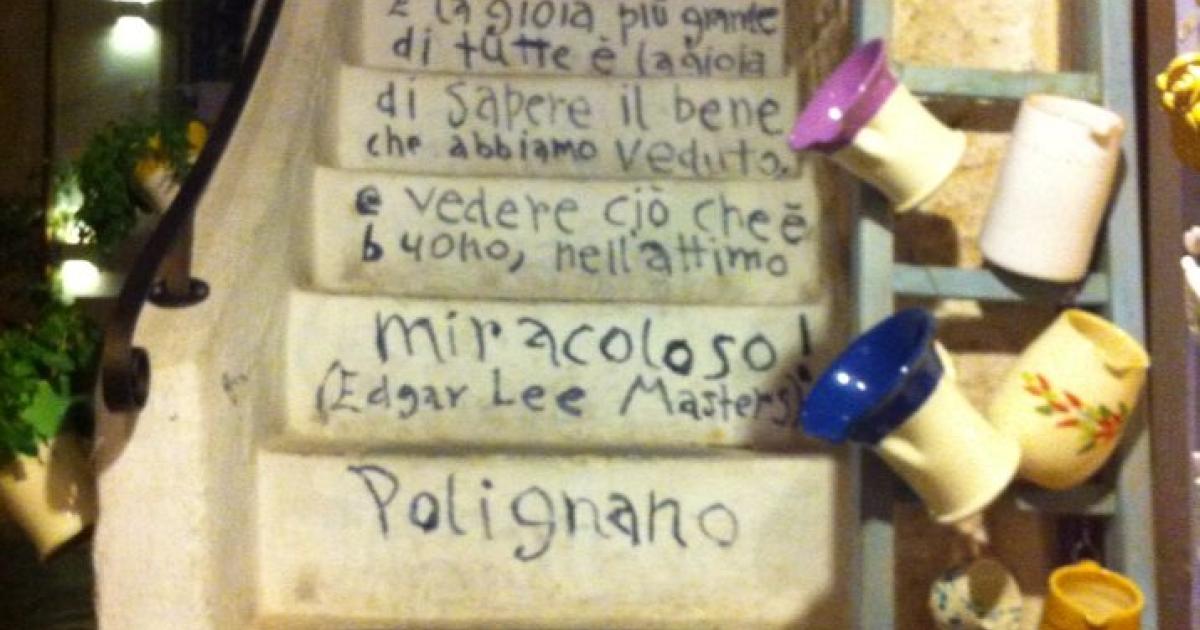 E la gioia più grande
di tutte è la gioia
di sapere il bene
che abbiamo veduto,
e vedere ciò che è
buono, nell'attimo
miracoloso!
(Edgar Lee Masters)
Polignano